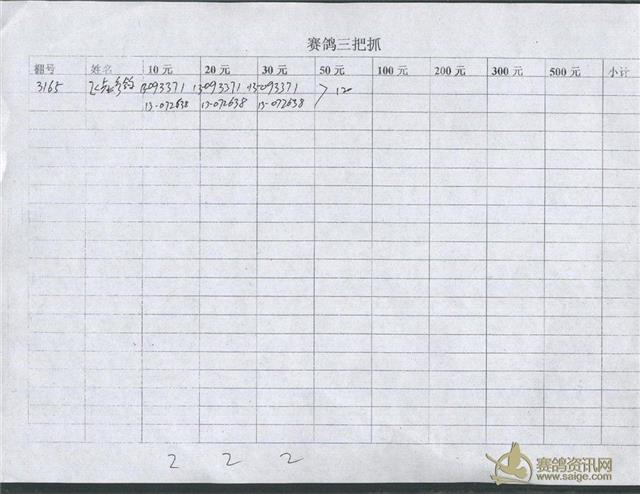 赛鸽三把抓
棚号 姓名 10 元 20 元 30 元 50 元 100 元 200 元 300 元 500 元 小计
3165 13-093371 13-093371 13-093371 120
13-072638 13-072638 13-072638
2 2 2
赛鸽资讯网
www.saige.com